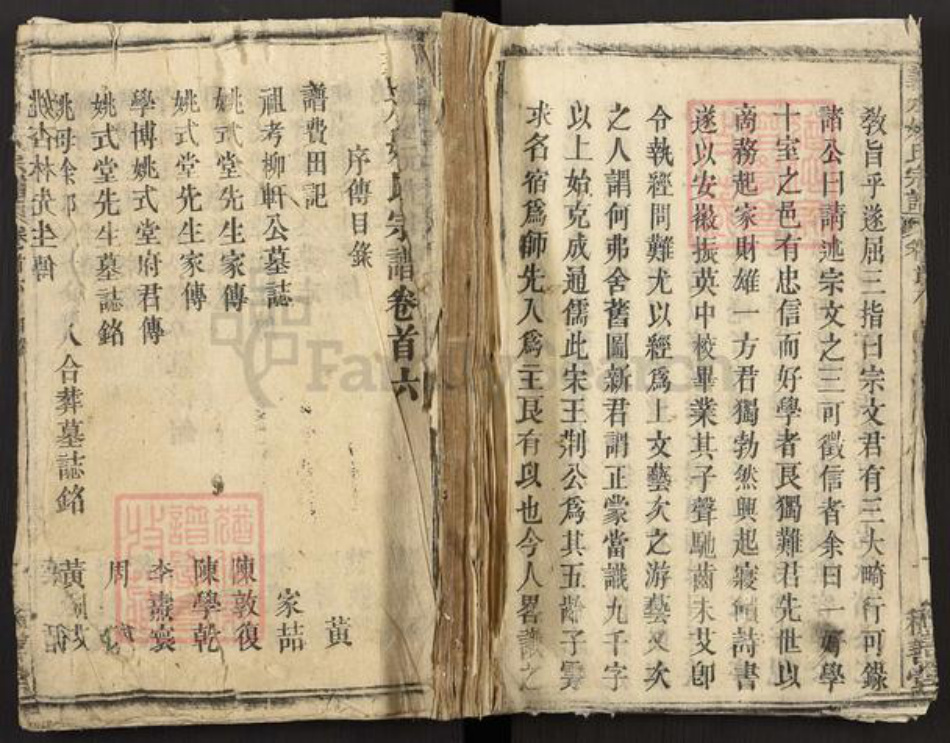 敎旨乎遂屈三指曰宗文君有三大畸行可錄
諸公曰請述宗文之三可徵信者余曰一好學
十室之邑有忠信而好學者艮獨難君先世以
商務起家財雄一方君獨勃然興起寢饋詩書
遂以安徽振英中校畢業其子聲馳齒未艾卽
令執經問難尤以經爲上文藝次之游藝又次
之人謂何弗舍舊圖新君謂正蒙當識九千字
以上始克成通儒此宋王荆公爲其五齡子雱
求名宿爲師先入爲主艮有以也今人畧識之
積善堂
姚氏宗譜卷首六
序傳目錄
譜費田記 黃
祖考柳軒公墓誌 家喆
姚式堂先生家傳 陳敦復
姚式堂先生家傳 陳學乾
學博姚式堂府君傳 李壽
姚式堂先生墓誌銘 周
姚母余 人合葬墓誌銘 黃
姚杏林先生
FamilySearch